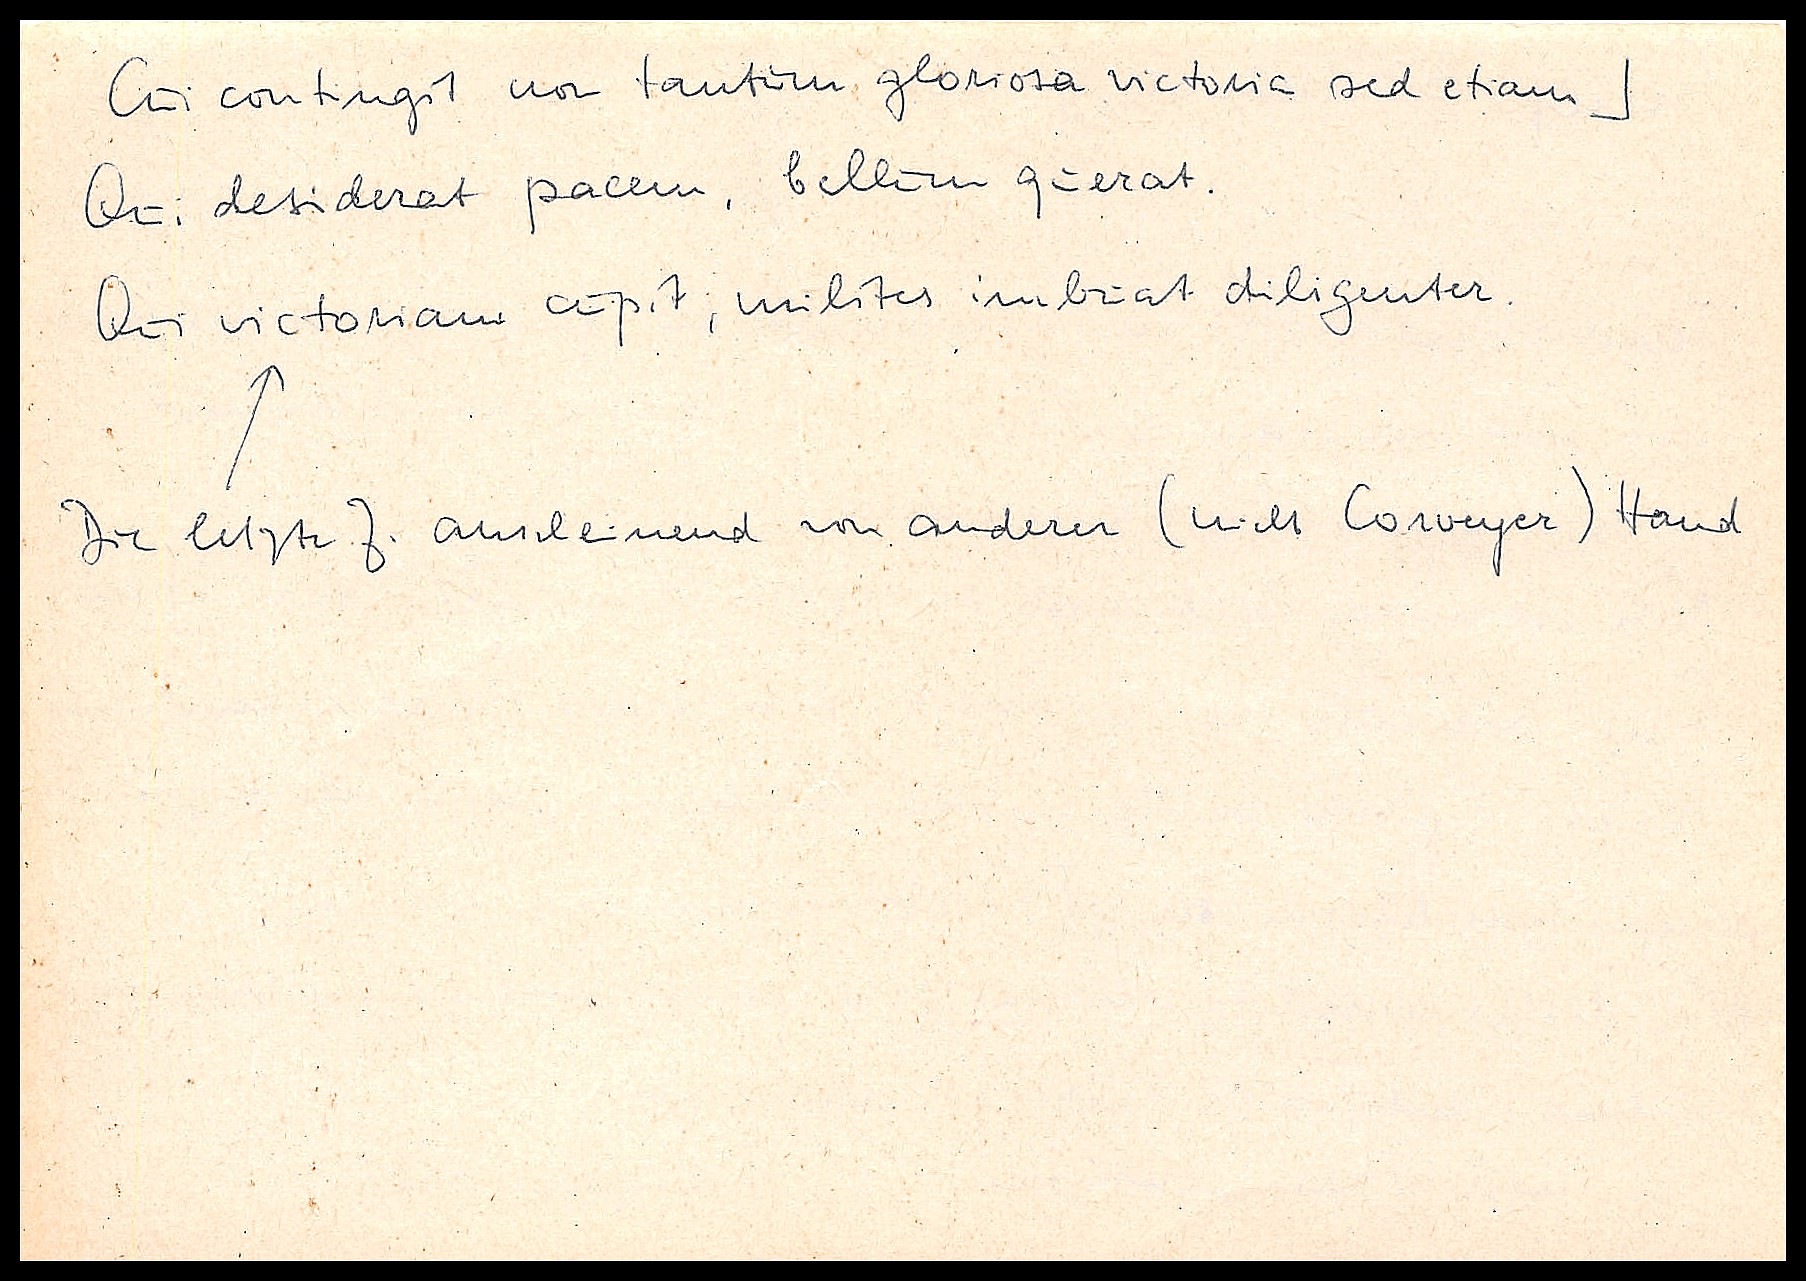 Cui contingit non tantum gloriosa victoria sed etiam ]
Qui desiderat pacem, bellum querat.
Qui victoriam cupit, milites imbuat diligenter.
Die letzte Z. anscheinend von anderer (nicht Corveyer) Hand